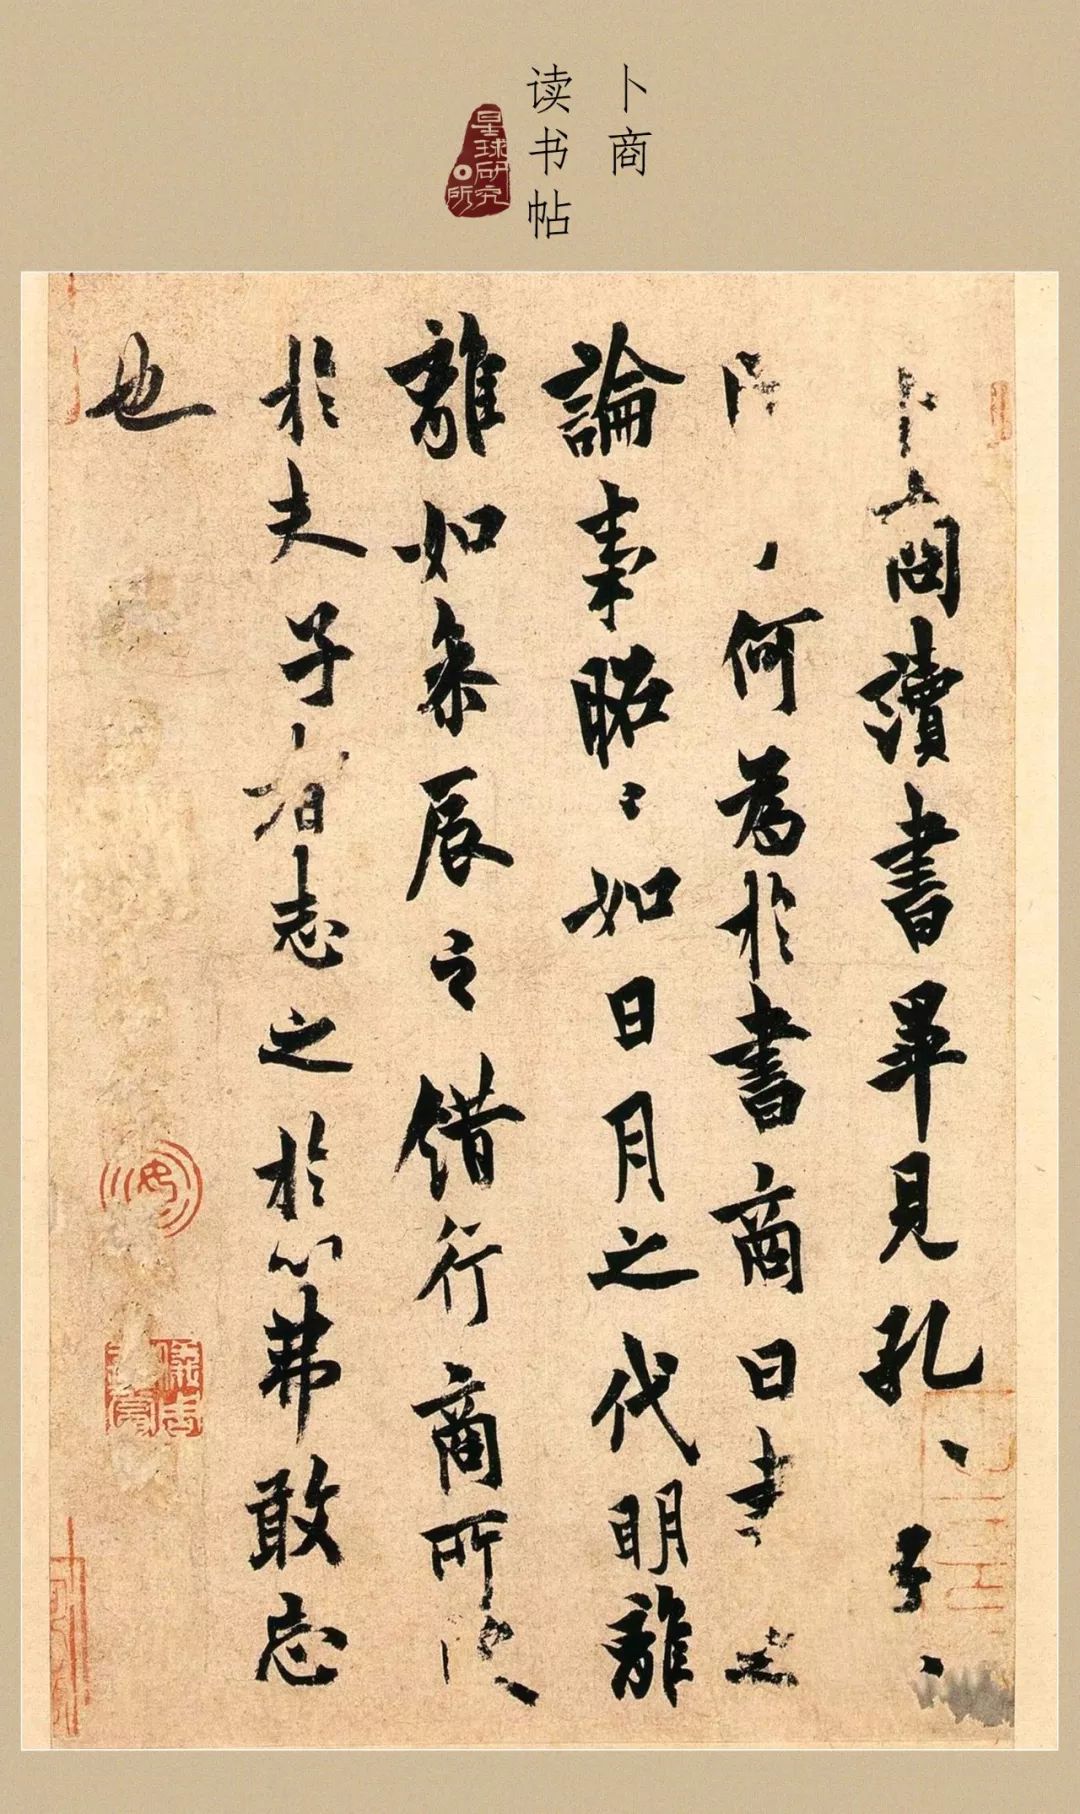 卜商
读书帖
星球研究所
卜商讀書畢見孔子
何為於書商曰書之
論事昭〻如日月之代明離
離如叅辰之錯行商所
於夫子者志之於心弗敢忘
也